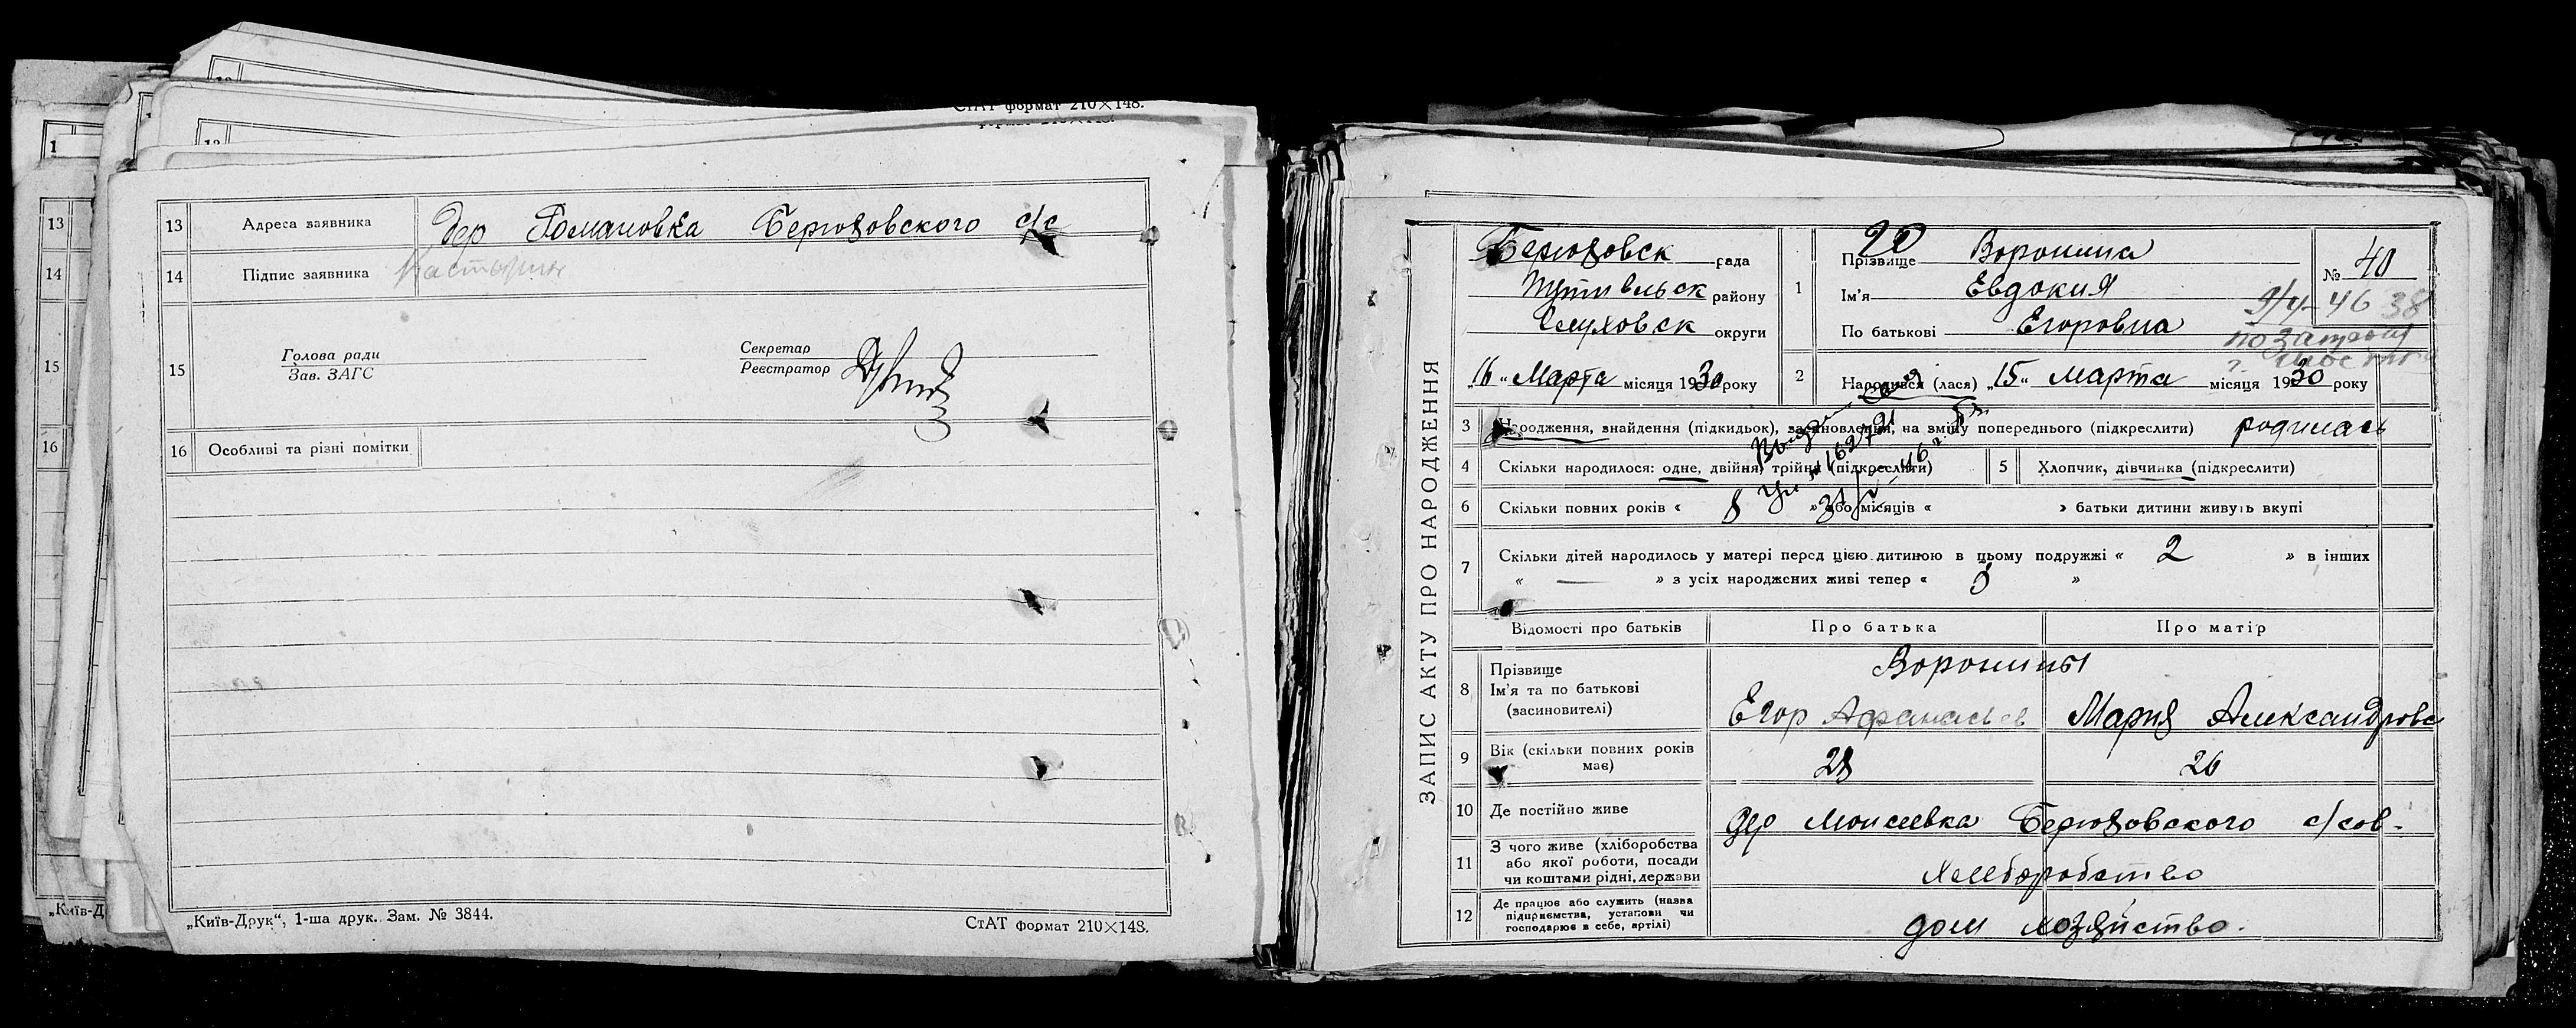 СтАТ формат 210×148.
13 Адреса заявника дер Романовка Берюховского с/с
14 Підпис заявника
15 Голова ради
Зав. ЗАГС
Секретар
Реєстратор
16 Особливі та різні помітки
„Київ-Друк“, 1-ша друк. Зам. № 3844.
СтАТ формат 210×148.
13
14
15
16
„Київ-Д
ЗАПИС АКТУ ПРО НАРОДЖЕННЯ
рада
Путивльск району
Глуховск округи
„16“ Марта місяця 1930 року
20
1 Прізвище Воронина
Ім'я Евдокия
По батькові Егоровна
№ 40
2 Народився (лася) „15“ Марта місяця 1930 року
3 Народження, знайдення (підкидьок), засиновлення, на зміну попереднього (підкреслити) родилась
4 Скільки народилося: одне, двійня, трійня (підкреслити)
5 Хлопчик, дівчинка (підкреслити)
6 Скільки повних років « 8 » або місяців « » батьки дитини живуть вкупі
7 Скільки дітей народилось у матері перед цією дитиною в цьому подружжі « 2 » в інших
« — » з усіх народжених живі тепер « 3 »
Відомості про батьків Про батька Про матір
8 Прізвище
Ім'я та по батькові
(засиновителі)
Воронины
Егор Афанасьев Мария Александровс
9 Вік (скільки повних років
має)
28 26
10 Де постійно живе дер Моисеевка Берюховского с/сов.
11 З чого живе (хліборобства
або якої роботи, посади
чи коштами рідні, держави
Хлеборобство
12 Де працює або служить (назва
підприємства, установи чи
господарює в себе, артілі)
дом хозяйство.